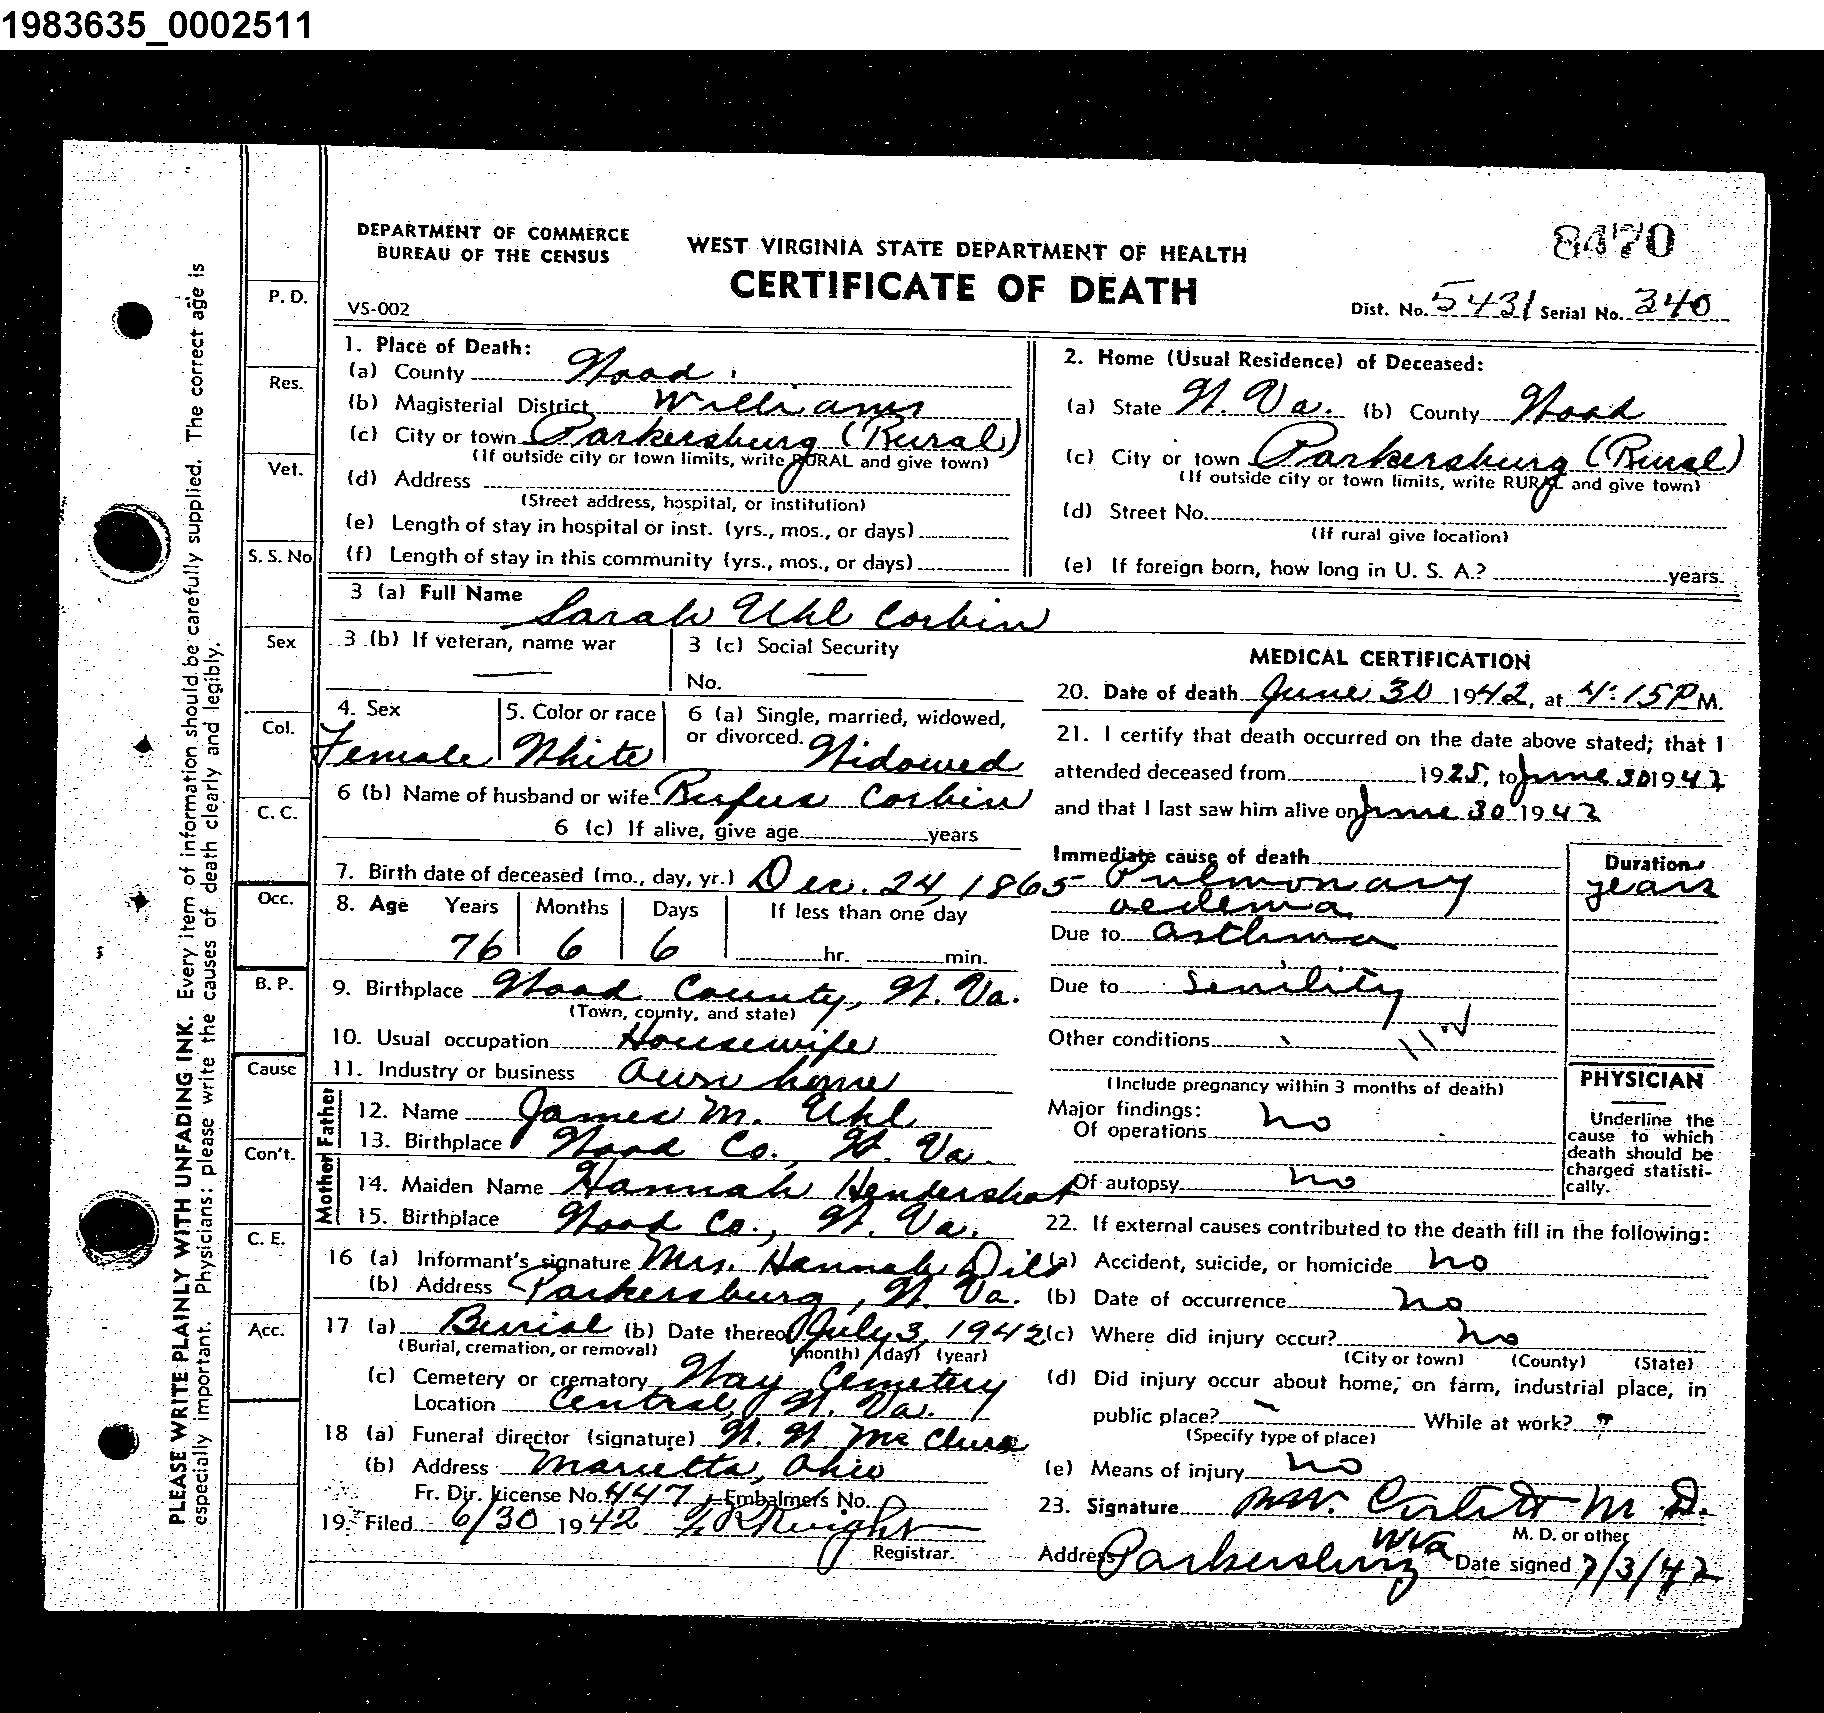 1983635_0002511
DEPARTMENT OF COMMERCE
BUREAU OF THE CENSUS
WEST VIRGINIA STATE DEPARTMENT OF HEALTH
CERTIFICATE OF DEATH
8470
VS-002
Dist. No. 5431 Serial No. 340
PLEASE WRITE PLAINLY WITH UNFADING INK. Every item of information should be carefully supplied. The correct age is
especially important. Physicians: please write the causes of death clearly and legibly.
P. D.
Res.
Vet.
S. S. No
Sex
Col.
C. C.
Occ.
B. P.
Cause
Con't.
C. E.
Acc.
1. Place of Death:
(a) County Wood
(b) Magisterial District Williams
(c) City or town Parkersburg (Rural)
(If outside city or town limits, write RURAL and give town)
(d) Address
(Street address, hospital, or institution)
(e) Length of stay in hospital or inst. (yrs., mos., or days)
(f) Length of stay in this community (yrs., mos., or days)
2. Home (Usual Residence) of Deceased:
(a) State W. Va. (b) County Wood
(c) City or town Parkersburg (Rural)
(If outside city or town limits, write RURAL and give town)
(d) Street No.
(If rural give location)
(e) If foreign born, how long in U. S. A.? years.
3 (a) Full Name Sarah Uhl Corbin
3 (b) If veteran, name war —
3 (c) Social Security
No. —
4. Sex Female
5. Color or race White
6 (a) Single, married, widowed,
or divorced. Widowed
6 (b) Name of husband or wife Rufus Corbin
6 (c) If alive, give age years
7. Birth date of deceased (mo., day, yr.) Dec. 24, 1865
8. Age Years Months Days If less than one day
76 6 6 hr. min.
9. Birthplace Wood County, W. Va.
(Town, county, and state)
10. Usual occupation Housewife
11. Industry or business Own home
Father
12. Name James M. Uhl
13. Birthplace Wood Co., W. Va.
Mother
14. Maiden Name Hannah Hendershot
15. Birthplace Wood Co., W. Va.
16 (a) Informant's signature Mrs. Hannah Dils
(b) Address Parkersburg, W. Va.
17 (a) Burial (b) Date thereof July 3, 1942
(Burial, cremation, or removal) (month) (day) (year)
(c) Cemetery or crematory Way Cemetery
Location Central, W. Va.
18 (a) Funeral director (signature) W. W. McClure
(b) Address Marietta, Ohio
Fr. Dir. License No. 447 Embalmers No.
19. Filed 6/30 1942 Knight
Registrar.
MEDICAL CERTIFICATION
20. Date of death June 30 1942, at 4:15 P M.
21. I certify that death occurred on the date above stated; that I
attended deceased from 1925, to June 30 1942
and that I last saw him alive on June 30 1942
Immediate cause of death
Pulmonary
oedema
Due to asthma
Due to Senility
Other conditions
(Include pregnancy within 3 months of death)
Major findings:
Of operations no
Of autopsy no
Duration
years
PHYSICIAN
Underline the
cause to which
death should be
charged statisti-
cally.
22. If external causes contributed to the death fill in the following:
(a) Accident, suicide, or homicide no
(b) Date of occurrence no
(c) Where did injury occur? no
(City or town) (County) (State)
(d) Did injury occur about home, on farm, industrial place, in
public place? — While at work?
(Specify type of place)
(e) Means of injury no
23. Signature M. D.
M. D. or other
Address Parkersburg W Va Date signed 7/3/42